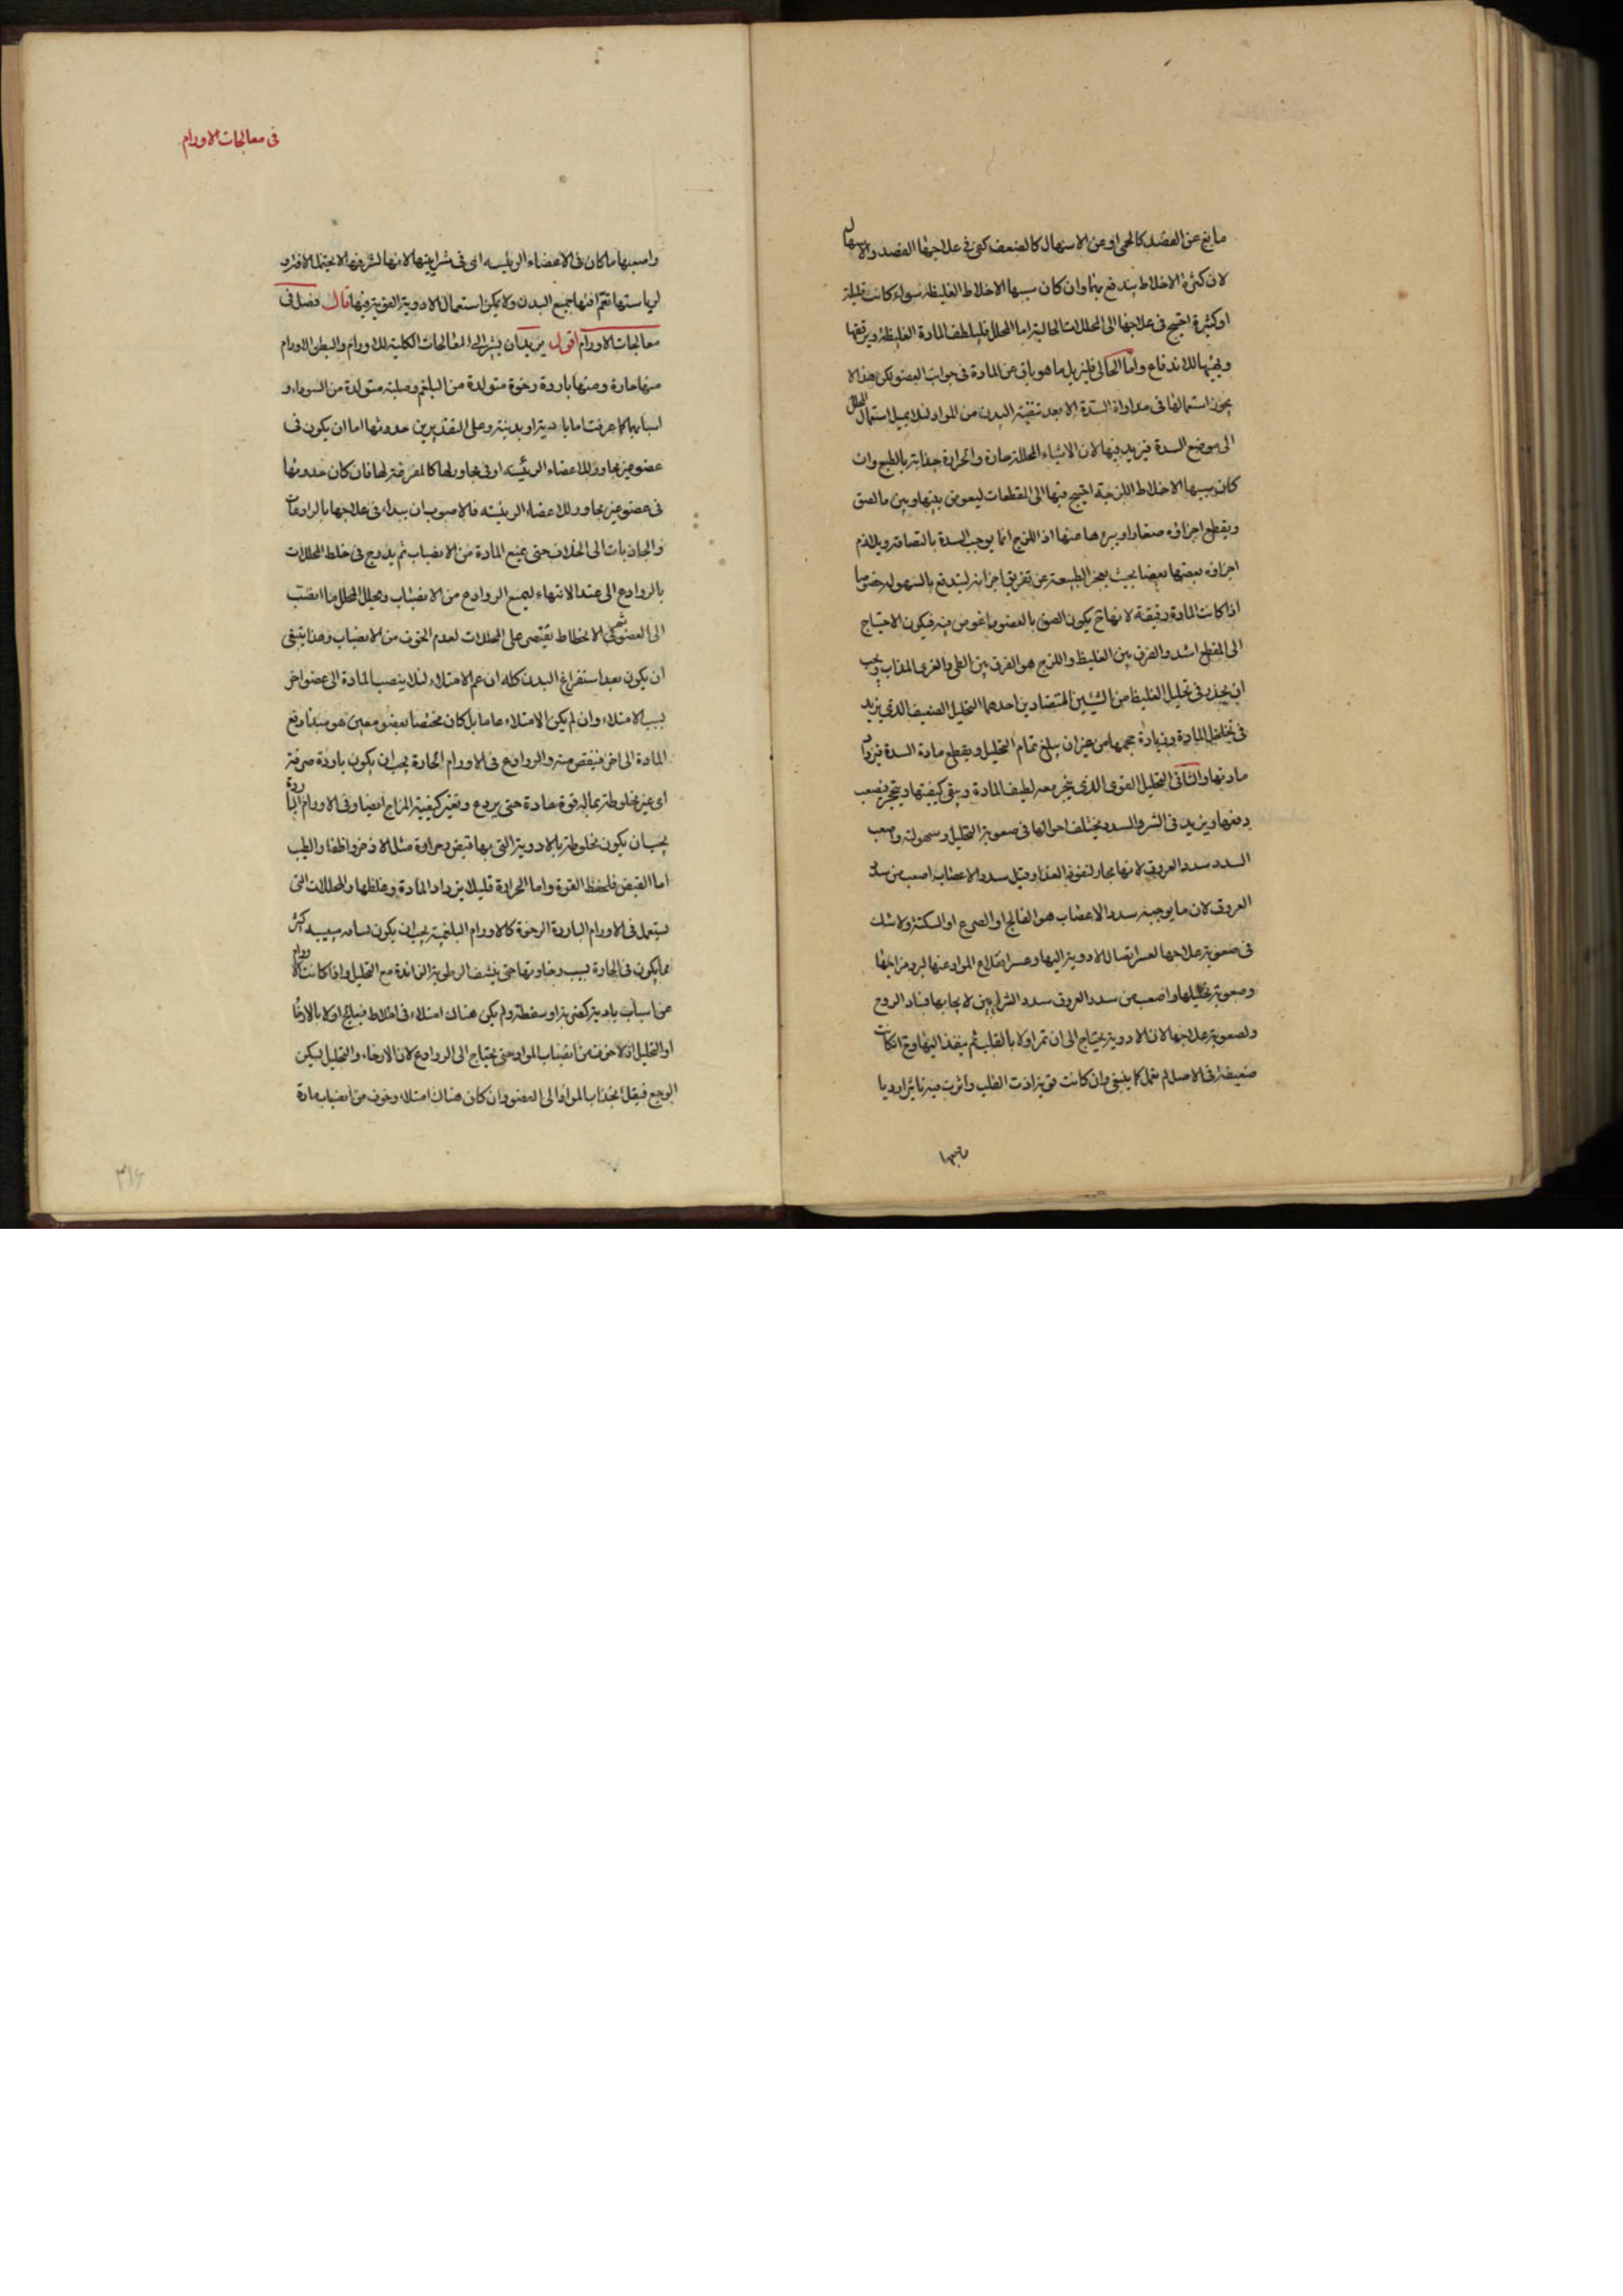 مانع عن الفصد كالحمى او عن الاسهال كالضعف كفى فى علاجها الفصد والاسهال
لان كثرة الاخلاط يندفع بهما وان كان سببها الاخلاط الغليظة سواء كانت قليلة
او كثيرة احتيج فى علاجها الى المحللات الجالية اما المحلل فليلطف المادة الغليظة ويرققها
ويهيئها للاندفاع واما الجالى فليزيل ما هو باق من المادة فى جوانب العضو لكن هذا لا
يجوز استعمالها فى مداواة السدة الا بعد تنقية البدن من المواد لئلا يميل استعمال المحلل
الى موضع السدة فيزيد فيها لان الاشياء المحللة حارة والحرارة جذابة بالطبع وان
كان سببها الاخلاط اللزجة احتيج فيها الى المقطعات ليغوص بينها وبين ما لصق
ويقطع اجزاؤه صغارا ويبرءها منها اذ اللزج انما يوجب السدة بالتصاقه ويلازم
اجزاؤه بعضها بعضا بحيث يعجز الطبيعة عن تفريق اجزائه ليندفع بالسهولة خصوصا
اذا كانت المادة رقيقة لانها ح يكون الصق بالعضو واغوص فيه فيكون الاحتياج
الى المقطع اشد والفرق بين الغليظ واللزج هو الفرق بين الطين والغرى المذاب ويجب
ان يحذر فى تحليل الغليظ من الشيئين المتضادين احدهما التحليل الضعيف الذى يزيد
فى تخلخل المادة وزيادة حجمها من غير ان يبلغ تمام التحليل ويقطع مادة السدة فيزداد
مادتها والثانى التحليل القوى الذى يتبخر معه لطيف المادة ويبقى كثيفها ويتحجر فيصعب
دفعها ويزيد فى الشر والسدد يختلف احوالها فى صعوبة التحليل وسهولته واصعب
السدد سدد العروق لانها مجار لنفوذ الغذاء وقيل سدد الاعصاب اصعب من سدد
العروق لان ما يوجبه سدد الاعصاب هو الفالج او الصرع او السكتة ولا شك
فى صعوبة علاجها لعسر ايصال الادوية اليها وعسر انقلاع المواد عنها لبرد مزاجها
وصعوبة تحليلها واصعب من سدد العروق سدد الشرايين لايجابها فساد الروح
ولصعوبة علاجها لان الادوية يحتاج الى ان تمر اولا بالقلب ثم ينفذ اليها وح ان كانت
ضعيفة فى الاصل لم تعمل كما ينبغى وان كانت قوية اذت القلب واثرت فيه تاثيرا رديا
واصعبها
فى معالجات الاورام
واصعبها ما كان فى الاعضاء الرئيسة اى فى شرايينها لانها لشرفها لا يحتمل الافة و
لرياستها تعم افتها جميع البدن ولا يمكن استعمال الادوية القوية فيها قال فصل فى
معالجات الاورام اقول يريد ان يشير الى المعالجات الكلية للاورام والبط والاورام
منها حارة ومنها باردة رخوة متولدة من البلغم وصلبة متولدة من السوداء و
اسبابها كما عرفت اما بادية او بدنية وعلى التقديرين حدوثها اما ان يكون فى
عضو غير مجاور للاعضاء الرئيسة او فى مجاورها كالمفرغة لها فان كان حدوثها
فى عضو غير مجاور للاعضاء الرئيسة فالاصوب ان يبداء فى علاجها بالرادعات
والجاذبات الى الخلاف حتى يمنع المادة من الانصباب ثم يدرج فى خلط المحللات
بالروادع الى عند الانتهاء ليمنع الروادع من الانصباب ويحلل المحلل ما انصب
الى العضو ثم فى الانحطاط يقتصر على المحللات لعدم الخوف من الانصباب وهذا ينبغى
ان يكون بعد استفراغ البدن كله ان عم الامتلاء لئلا ينصب المادة الى عضو اخر
بسبب الامتلاء وان لم يكن الامتلاء عاما بل كان مختصا بعضو معين هو مبدأ دفع
المادة الى اخر فينقص منه والروادع فى الاورام الحارة يجب ان يكون باردة صرفة
اى غير مخلوطة بما له قوة حادة حتى يردع وتغير كيفية المزاج ايضا وفى الاورام الباردة
يجب ان يكون مخلوطة بالادوية التى بها قبض وحرارة مثل الاذخر واظفار الطيب
اما القبض فلحفظ القوة واما الحرارة فليلا يزداد المادة وغلظها والمحللات التى
يستعمل فى الاورام الباردة الرخوة كالاورام البلغمية يجب ان يكون اكثر
مما يكون فى الحارة بسبب رخاوتها حتى ينشف الرطوبة الزائدة مع التحليل واذا كانت الاورام
من اسباب بادية كضربة او سقطة ولم يكن هناك امتلاء فى اخلاط فيعالج اولا بالارخاء
او التحليل اذ لا خوف من انصباب المواد حتى يحتاج الى الروادع لان الارخاء والتحليل يسكن
الوجع فيقل انجذاب المواد الى العضو وان كان هناك امتلاء وخوف من انصباب مادة